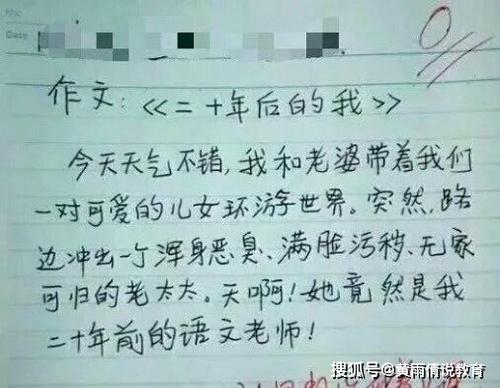 No:
Date
0
作文:《二十年后的我》
今天天气不错,我和老婆带着我们
一对可爱的儿女环游世界。突然,路
边冲出一个浑身恶臭、满脸污秽、无家
可归的老太太。天啊!她竟然是我
二十年前的语文老师!
搜狐号@黄雨情说教育